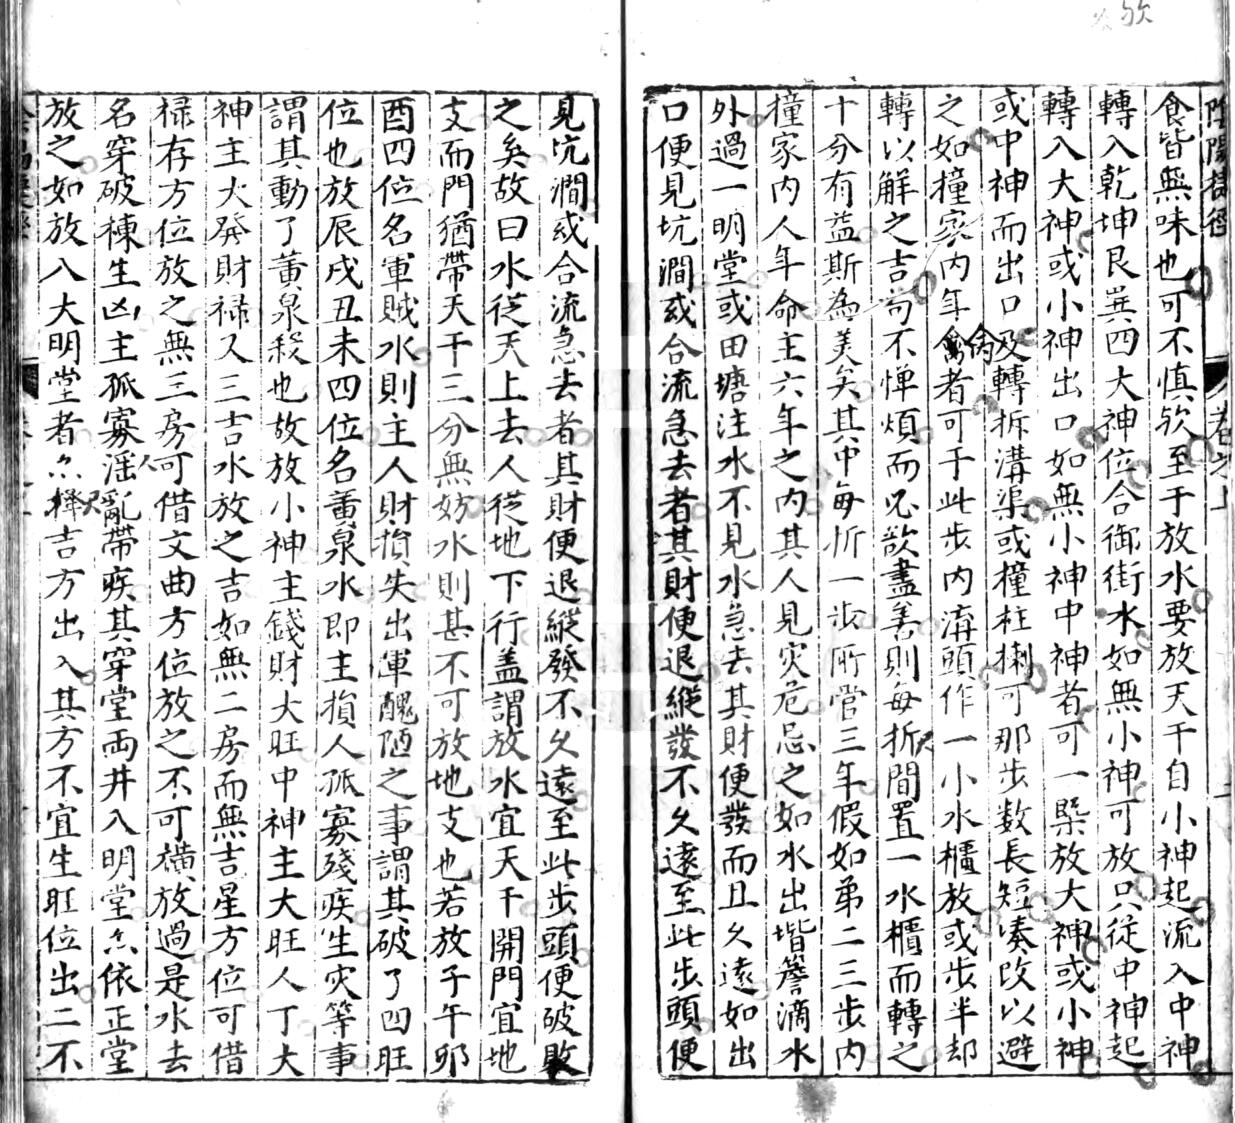 陰陽捷徑
卷之上
食皆無味也可不慎欤至于放水要放天干自小神起流入中神
轉入乾坤艮巽四大神位合御街水如無小神可放只從中神起
轉入大神或小神出口如無小神中神者可一槩放大神或小神
或中神而出口及轉拆溝渠或撞柱揦可那步数長短凑改以避
之如撞家内年禽者可于此步内溝頭作一小水櫃放或步半却
轉以解之吉可不惮煩而必欲盡善則每折間置一水櫃而轉之
十分有益斯為美矣其中每折一步所管三年假如第二三步内
撞家内人年命主六年之内其人見灾危忌之如水出堦簷滴水
外過一明堂或田塘注水不見水急去其財便發而且久遠如出
口便見坑澗或合流急去者其財便退縱發不久遠至此步頭便
見坑澗或合流急去者其財便退縱發不久遠至此步頭便破敗
之矣故曰水從天上去人從地下行盖謂放水宜天干開門宜地
支而門猶帶天干三分無妨水則甚不可放地支也若放子午卯
酉四位名軍賊水則主人財損失出軍醜陋之事謂其破了四旺
位也放辰戌丑未四位名黄泉水即主損人孤寡殘疾生灾等事
謂其動了黄泉殺也故放小神主錢財大旺中神主大旺人丁大
神主大發財禄又三吉水放之吉如無二房而無吉星方位可借
禄存方位放之無三房可借文曲方位放之不可横放過是水去
名穿破棟生凶主孤寡滛亂帶疾其穿堂両井入明堂亦依正堂
放之如放入大明堂者亦擇吉方出入其方不宜生旺位出二不